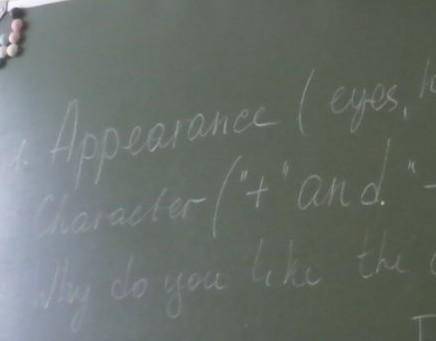 1. Appearance (eyes,
Character ("+" and "-
Why do you like the